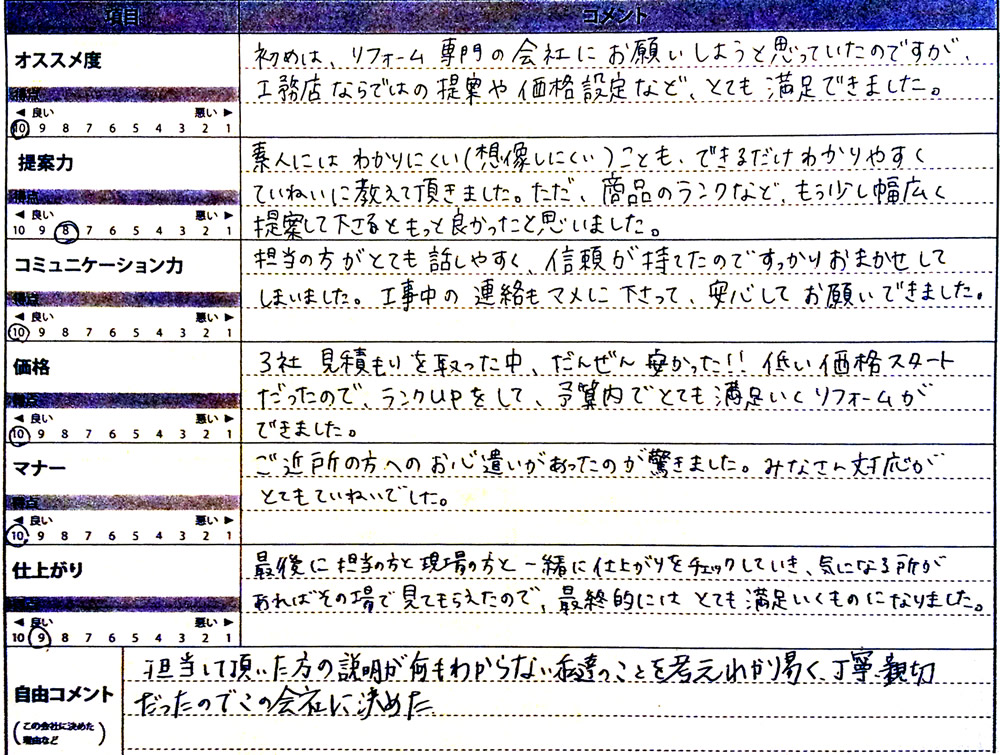 項目 コメント
オススメ度
得点
◀ 良い 悪い ▶
10 9 8 7 6 5 4 3 2 1
初めは、リフォーム専門の会社にお願いしようと思っていたのですが、
工務店ならではの提案や価格設定など、とても満足できました。
提案力
得点
◀ 良い 悪い ▶
10 9 8 7 6 5 4 3 2 1
素人にはわかりにくい(想像しにくい)ことも、できるだけわかりやすく
ていねいに教えて頂きました。ただ、商品のランクなど、もう少し幅広く
提案して下さるともっと良かったと思いました。
コミュニケーション力
得点
◀ 良い 悪い ▶
10 9 8 7 6 5 4 3 2 1
担当の方がとても話しやすく、信頼が持てたのですっかりおまかせして
しまいました。工事中の連絡もマメに下さって、安心してお願いできました。
価格
得点
◀ 良い 悪い ▶
10 9 8 7 6 5 4 3 2 1
3社見積もりを取った中、だんぜん安かった!! 低い価格スタート
だったので、ランクUPをして、予算内でとても満足いくリフォームが
できました。
マナー
得点
◀ 良い 悪い ▶
10 9 8 7 6 5 4 3 2 1
ご近所の方へのお心遣いがあったのが驚きました。みなさん対応が
とてもていねいでした。
仕上がり
得点
◀ 良い 悪い ▶
10 9 8 7 6 5 4 3 2 1
最後に担当の方と現場の方と一緒に仕上がりをチェックしていき、気になる所が
あればその場で見てもらえたので、最終的にはとても満足いくものになりました。
自由コメント
(この会社に決めた
理由など)
担当して頂いた方の説明が何もわからない私達のことを考えわかり易く、丁寧、親切
だったのでこの会社に決めた